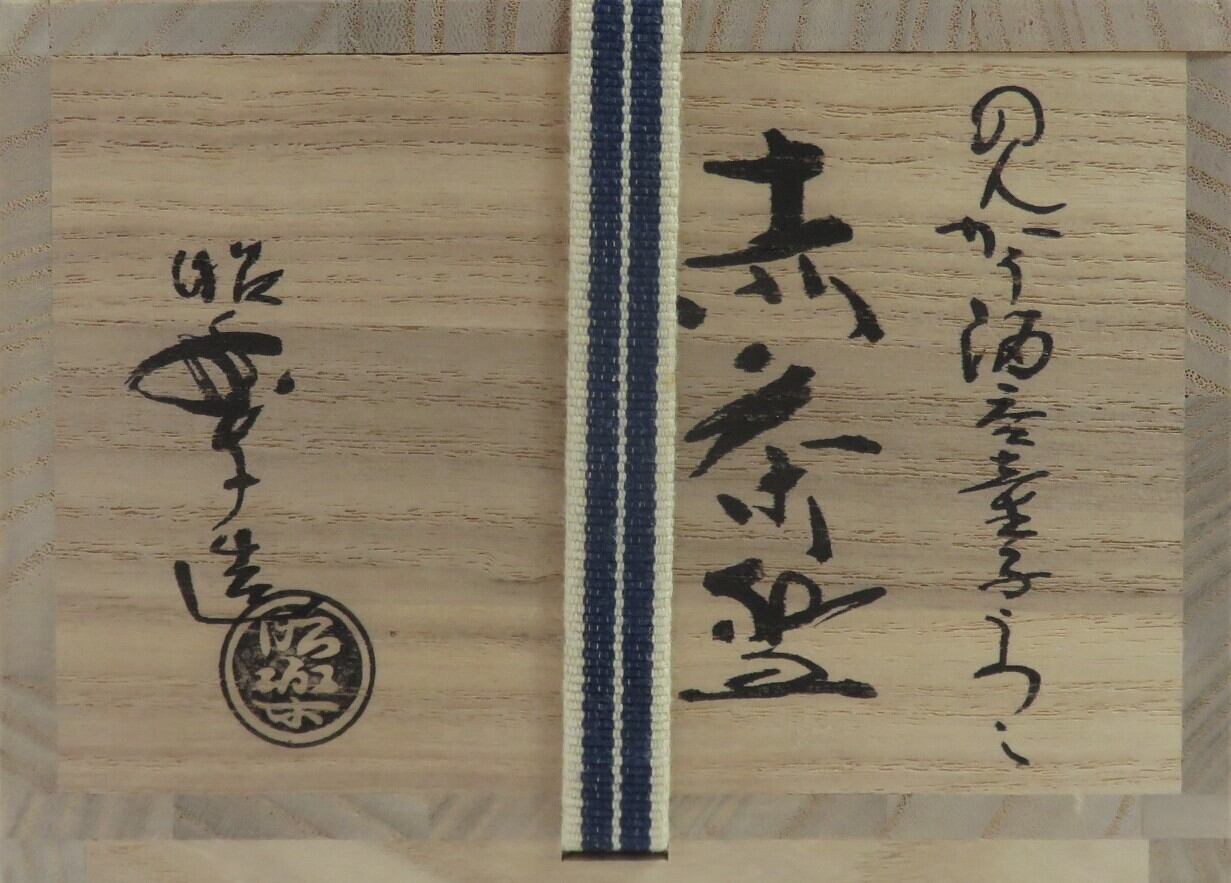 のんかう酒呑童子うつし
赤茶盌
昭樂造
昭樂